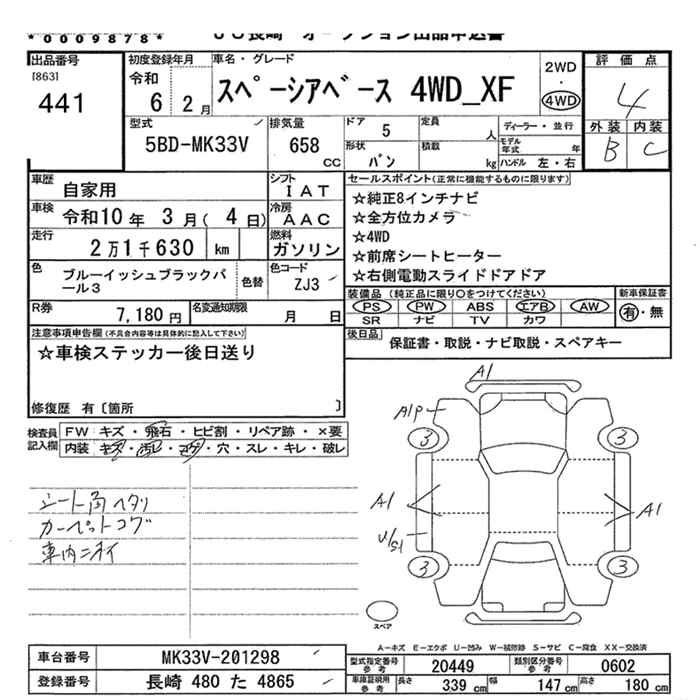 *0009878*
JU長崎 オークション出品申込書
出品番号
[863]
441
初度登録年月
令和
6 2月
車名・グレード
スペーシアベース 4WD_XF
2WD
・
4WD
評価点
4
外装 内装
B C
型式
5BD-MK33V
排気量
658
CC
ドア
5
形状
バン
定員
人
積載
kg
ディーラー・並行
モデル年式 年
ハンドル 左・右
車歴
自家用
シフト
IAT
車検
令和10年 3月( 4日)
冷房
AAC
走行
2万1千630 km
燃料
ガソリン
色
ブルーイッシュブラックパール3
色替
色コード
ZJ3
R券
7,180円
名変通知期限
月 日
セールスポイント(正常に機能するものに限ります)
☆純正8インチナビ
☆全方位カメラ
☆4WD
☆前席シートヒーター
☆右側電動スライドドアドア
装備品(純正品に限り○をつけてください)
PS PW ABS エアB AW
SR ナビ TV カワ
新車保証書
有・無
後日品
保証書・取説・ナビ取説・スペアキー
注意事項申告欄(不具合内容等は具体的に記入して下さい)
☆車検ステッカー後日送り
修復歴 有〔箇所 〕
検査員記入欄
FW キズ・飛石・ヒビ割・リペア跡・×要
内装 キズ・汚レ・コゲ・穴・スレ・キレ・破レ
シート角ヘタリ
カーペットコゲ
車内ニオイ
A1
A1P
3
3
A1
A1
U/S1
3
3
スペア
A-キズ E-エクボ U-凹み W-補修跡 S-サビ C-腐食 XX-交換済
車台番号
MK33V-201298
登録番号
長崎 480 た 4865
型式指定番号
参考
20449
類別区分番号
参考
0602
車庫証明用
参考
長さ 339 cm 幅 147 cm 高さ 180 cm